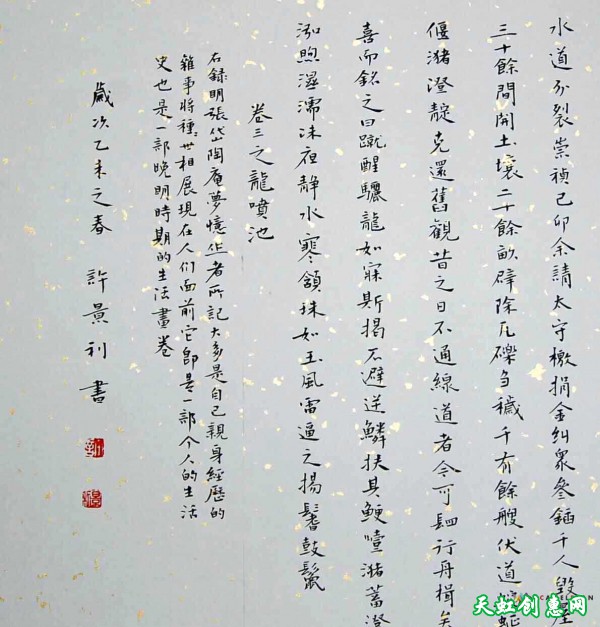 水道分裂崇禎己卯余請太守檄捐金糾衆叄錨千人毀屋
三十餘間開土壤二十餘畝辟除瓦礫芻穢千有餘艘伏道蜿蜒
偃潴澄靛克還舊觀昔之日不通線道者今可肆行舟楫矣
喜而銘之曰蹴醒驪龍如寐斯揭不避逆鱗扶其鯁噎潴蓄澄
泓煦濕濡沫夜静水寒頷珠如玉風雷逼之揚鬐鼓鬣
卷三之龍噴池
右録明張岱陶庵夢憶作者所記大多是自己親身經歷的
雜事將種種世相展現在人们面前它即是一部个人的生活
史也是一部晚明時期的生活畫卷
歲次乙未之春 許景利書
天虹创惠网